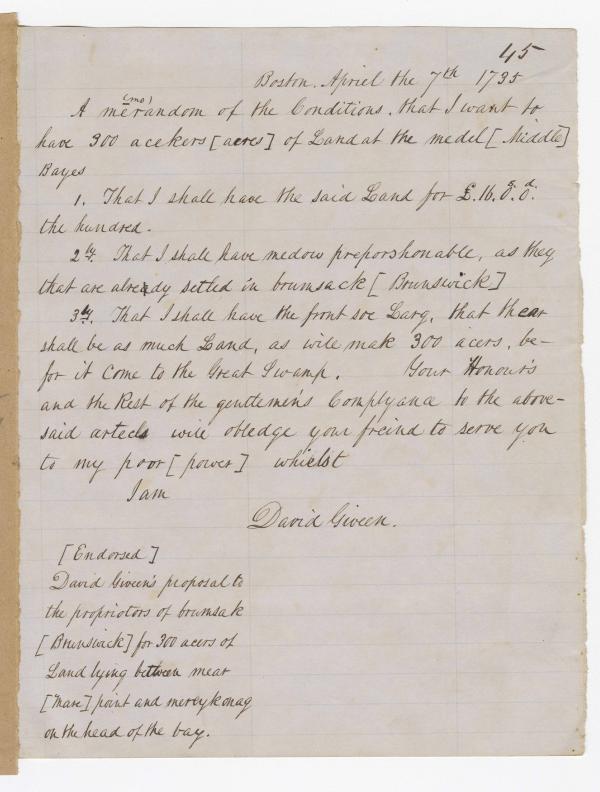 45
Boston. Apriel the 7th 1735
(mo)
A merandom of the Conditions. that I want to
have 300 acekers [acres] of Land at the medel [Middle]
Bayes
1. That I shall have the said Land for £.16.0s.0d.
the hundred.
2ly. That I shall have medow preporshonable, as they
that are already setled in brumsack [Brunswick]
3ly. That I shall have the front soe Larg, that thear
shall be as much Land, as will make 300 acers, be-
for it Come to the Great Swamp. Your Honour's
and the Rest of the gentlemen's Complyance to the above-
said artecls will obledge your freind to serve you
to my poor [power] whielst
I am
David Giveen.
[Endorsed]
David Giveen's proposal to
the propriotors of brumsak
[Brunswick] for 300 acers of
Land lying between mear
[Mare] point and mereykonag
on the head of the bay.